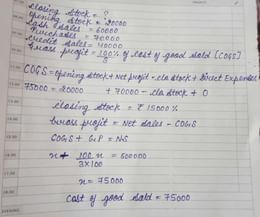 closing stock = ?
opening stock = 20000
cash sales = 60000
Purchases = 70000
credit sales = 40000
Gross profit = 100% / 3 of cost of good sold [COGS]
COGS = opening stock + Net profit - clo stock + Direct Expenses
75000 = 20000 + 70000 - clo stock + 0
closing stock = ₹ 15000
Gross profit = Net sales - COGS
COGS + G.P = NS
x + 100 x / 3×100 = 100000
x = 75000
cost of good sold = 75000